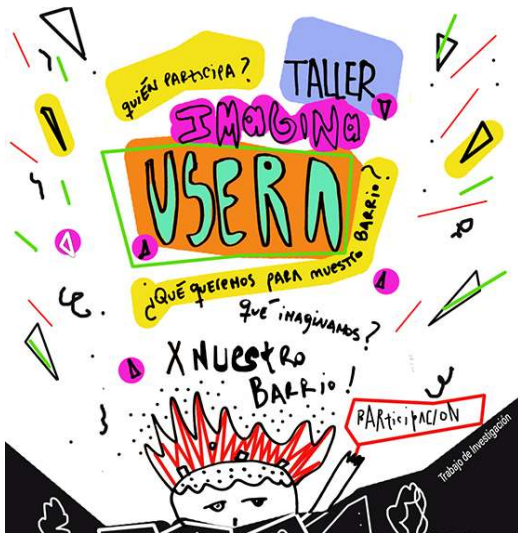 quiÉN PARTICIPA?
TALLER
IMAGINA
USERA
¿QUÉ QUEREMOS PARA NUESTRO BARRIO?
qué imaginamos?
X NUEStRO
BARRIO!
PARticiPACION
Trabajo de Investigación